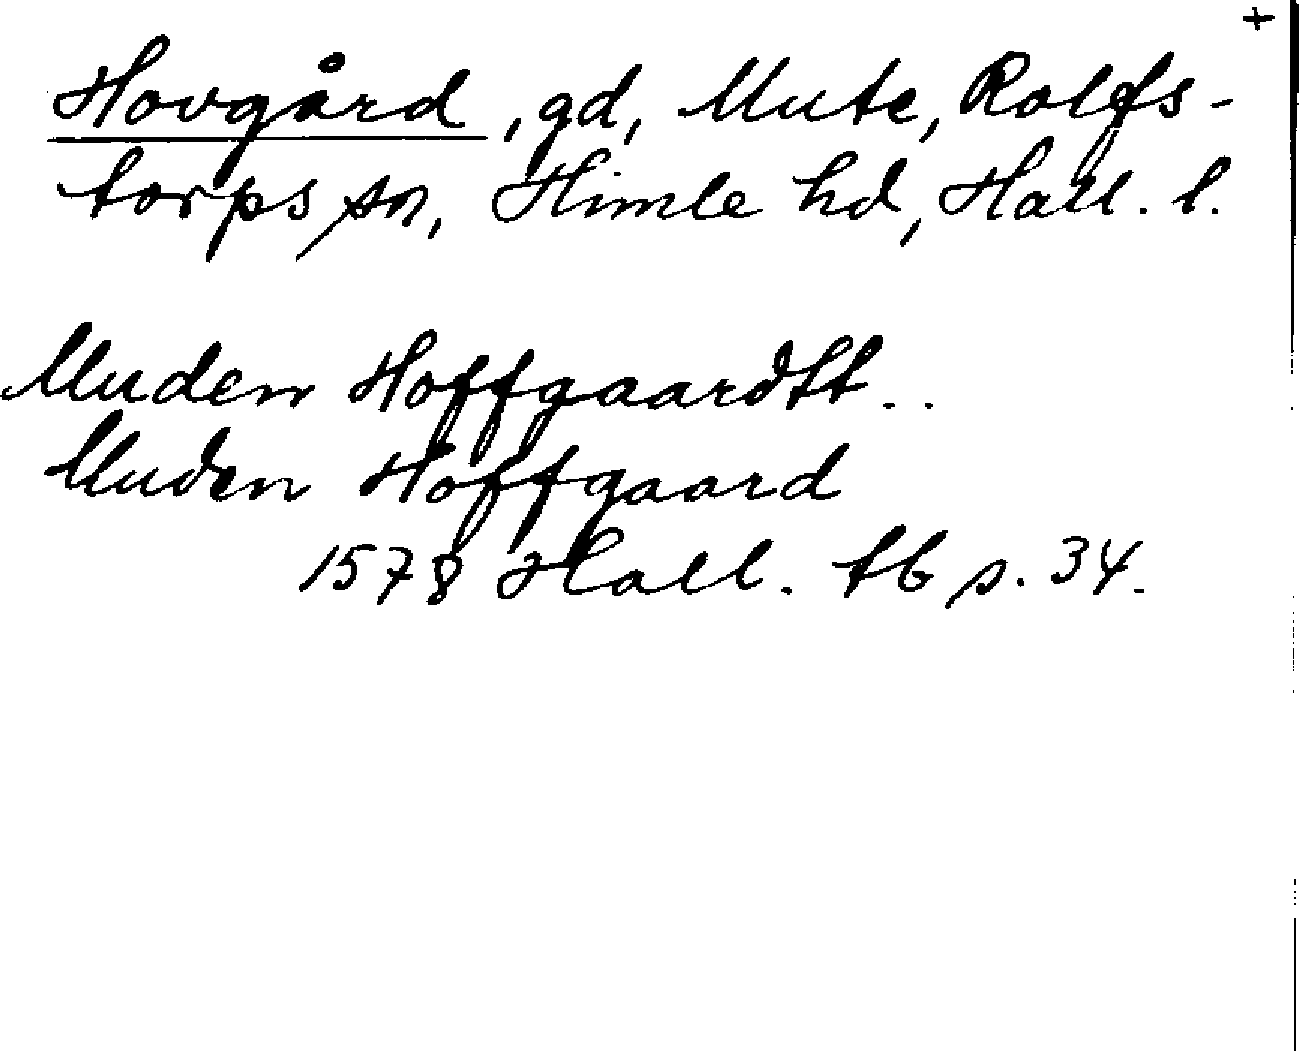 +
Hovgård, gd, Mute, Rolfs-
torps sn, Himle hd, Hall. l.
Muden Hoffgaardtt..
Muden Hoffgaard
1578 Hall. tb s. 34.